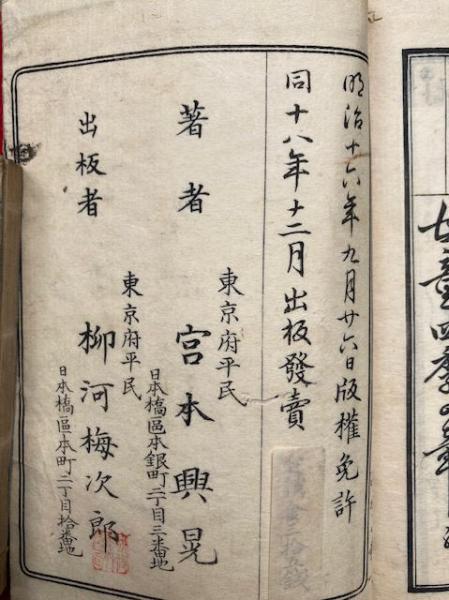 明治十六年九月廿六日版權免許
同十八年十二月出板發賣
東京府平民
著者 宮本興晃
日本橋區本銀町二丁目三番地
東京府平民
出板者 柳河梅次郎
日本橋區本町二丁目拾番地